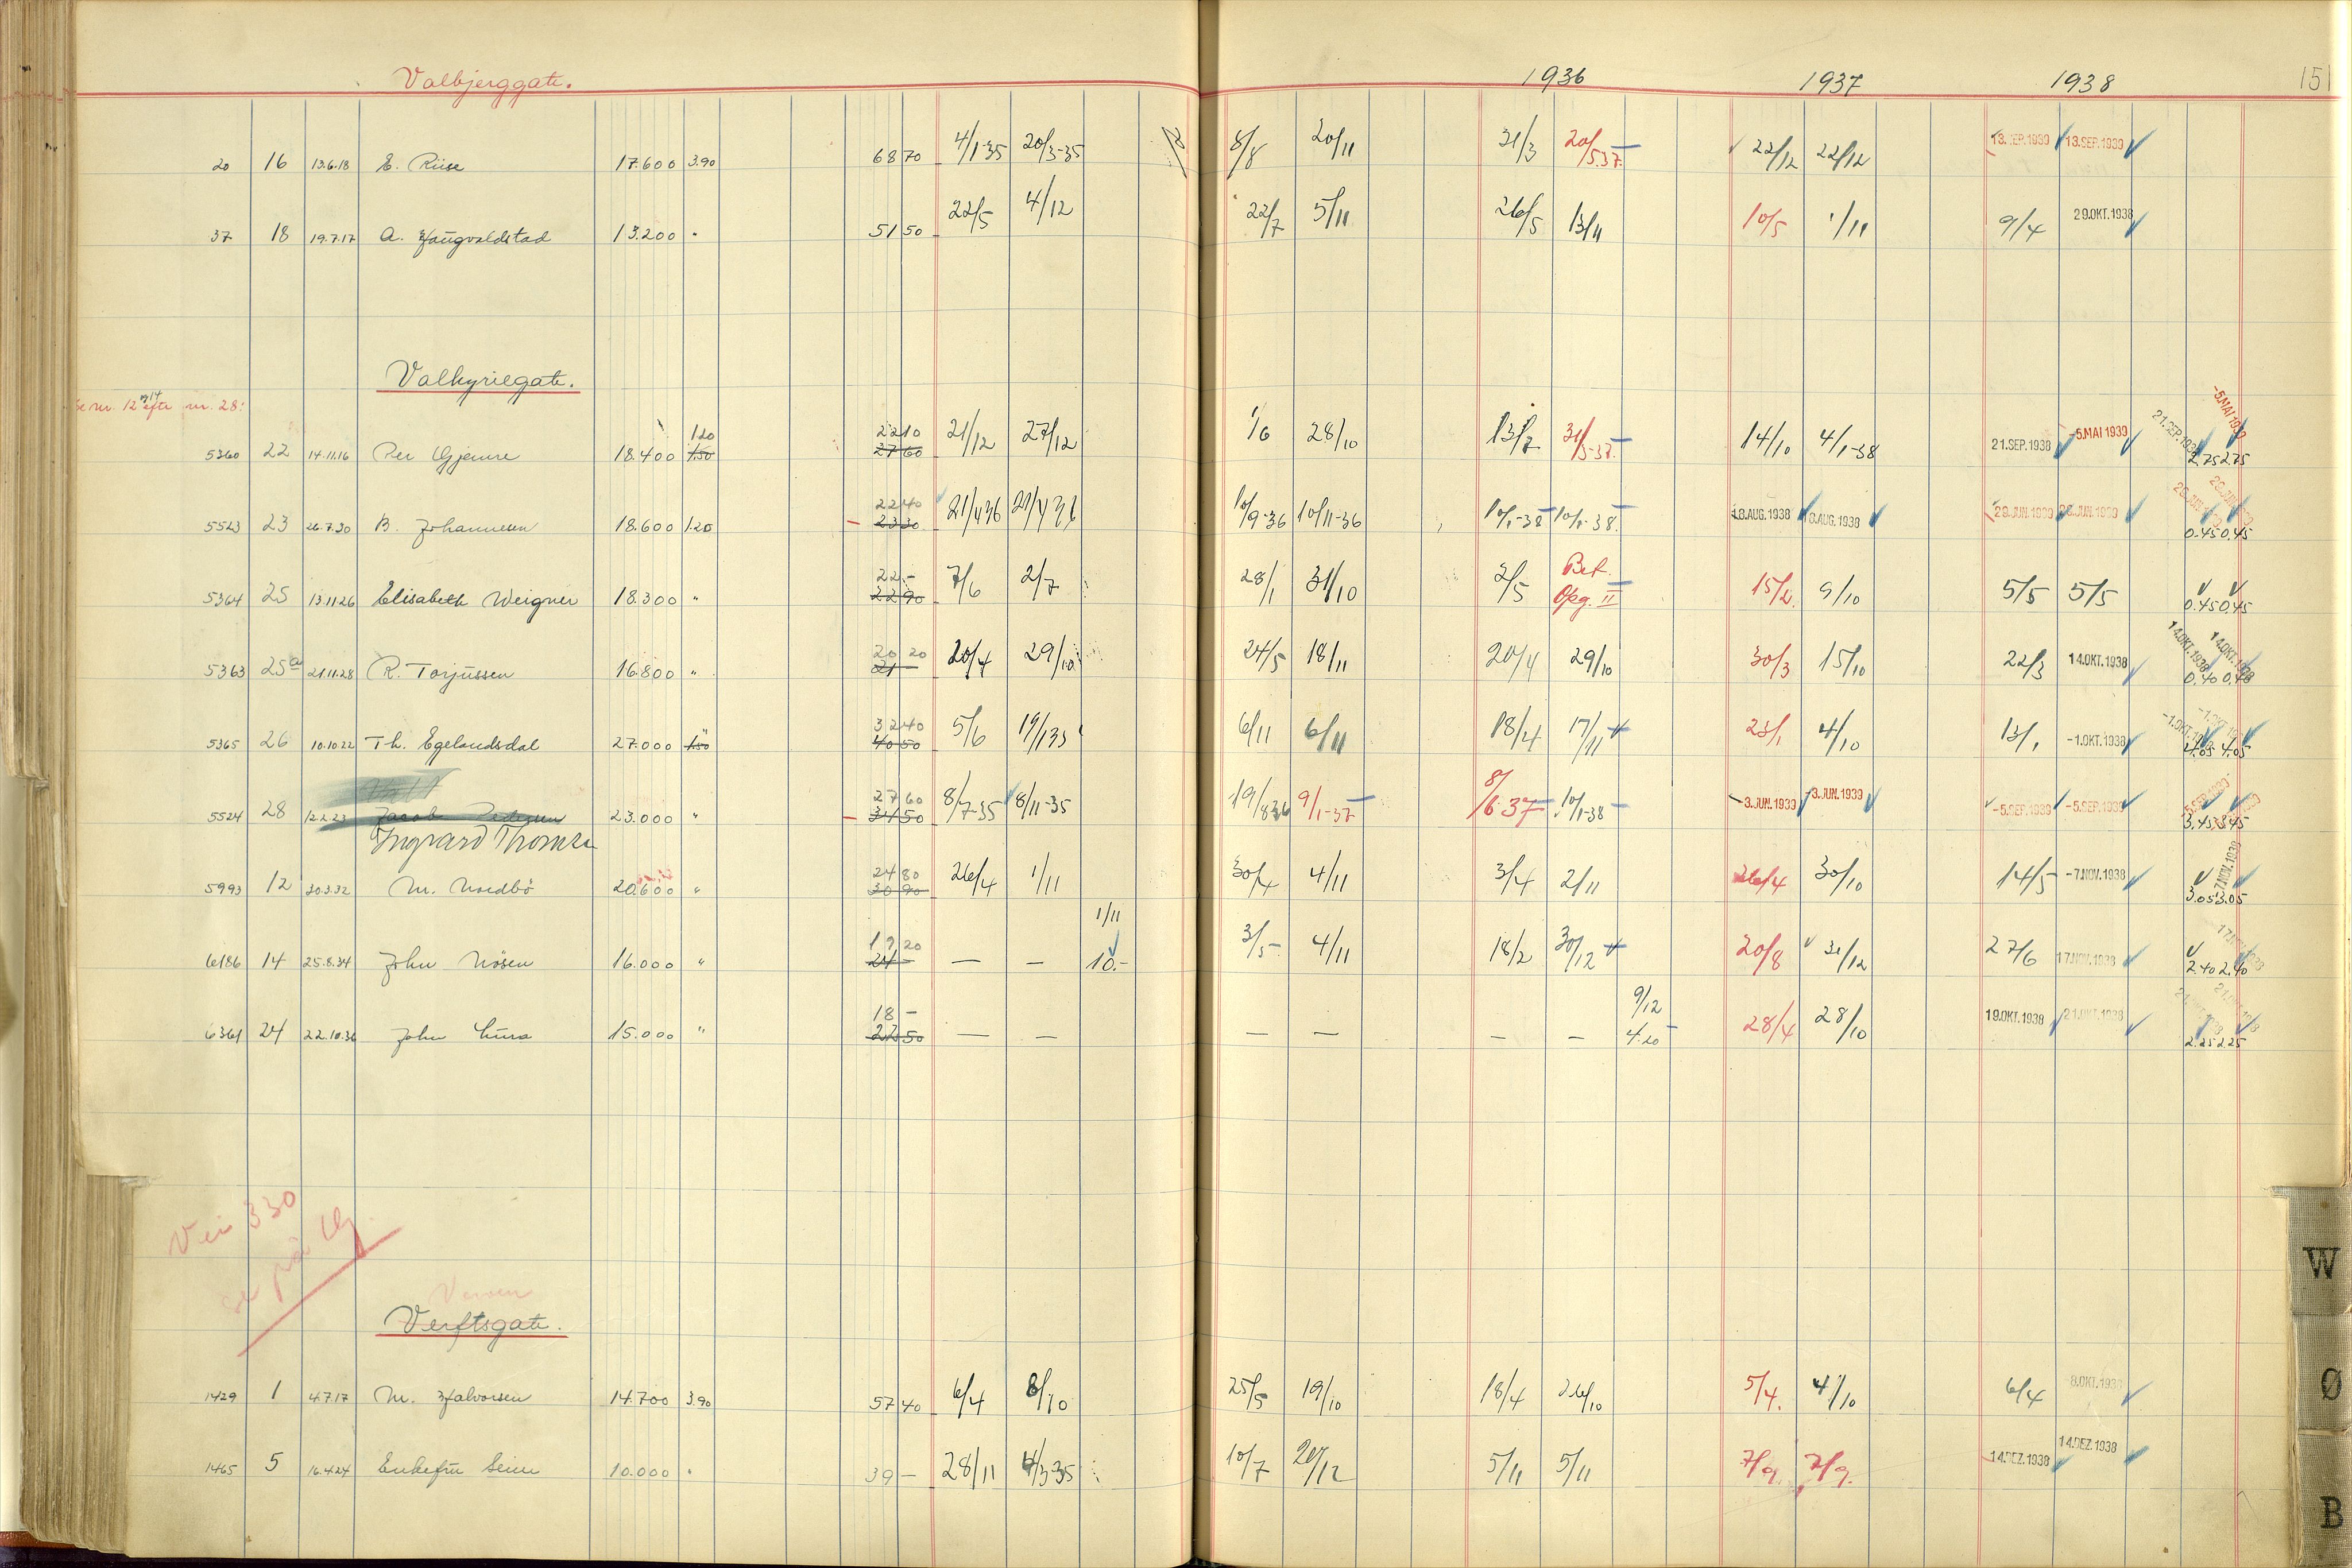 Valbjerggate. 1936 1937 1938 151
20 16 13.6.18 E. Riise 17.600 3.90 68 70 4/1-35 20/3-35 8/8 20/11 31/3 20/5.37. 22/12 22/12 13.SEP.1939 13.SEP.1939
37 18 19.7.17 A. Haugvaldstad 13.200 " 51 50 22/5 4/12 22/7 5/11 26/5 13/11 10/5 1/11 9/4 29.OKT.1938
Valkyriegate.
Se nr. 12 og 14 efter nr. 28:
5360 22 14.11.16 Per Gjemre 18.400 1.20 1.50 22 10 27 60 21/12 27/12 1/6 28/10 13/7 31/3-37. 14/10 4/1-38 21.SEP.1938 -5.MAI 1939 21.SEP.1938 -5.MAI 1939 2.75 2.75
5523 23 26.7.30 B. Johannesen 18.600 1.20 22 40 23 30 21/4 36 21/4 36 10/9-36 10/11-36 10/1-38 10/1-38. 18.AUG.1938 18.AUG.1938 29.JUN.1939 26.JUN.1939 0.45 0.45
5364 25 13.11.26 Elisabeth Weigner 18.300 " 22 - 22 90 7/6 2/7 28/1 31/10 2/5 Bet. Opg. II 15/2. 9/10 5/5 5/5 0.45 0.45
5363 25a 21.11.28 R. Torjussen 16.800 " 20 20 21 - 20/4 29/10 24/5 18/11 20/4 29/10 30/3 15/10 22/3 14.OKT.1938 14.OKT.1938 14.OKT.1938 0.40 0.40
5365 26 10.10.22 Th. Egelandsdal 27.000 " 1.50 32 40 40 50 5/6 19/1 35 6/11 6/11 18/4 17/11 23/1 4/10 13/1 -1.OKT.1938 -1.OKT.1938 -1.OKT.1938 4.05 4.05
5524 28 12.2.23 Jacob Pedersen 23.000 " 27 60 34 50 8/7-35 8/11-35 19/8 36 9/1-37 8/6 37 10/1-38 -3.JUN.1939 -3.JUN.1939 -5.SEP.1939 -5.SEP.1939 3.45 3.45
Ingvard Thomsen
5993 12 30.3.32 M. Nordbö 20.600 " 24 80 30 90 26/4 1/11 30/4 4/11 3/4 2/11 26/4 30/10 14/5 -7.NOV.1938 -7.NOV.1938 3.05 3.05
1/11
6186 14 25.8.34 John Nösen 16.000 " 19 20 24 - — — 10.- 3/5 4/11 18/2 30/12 20/8 31/12 27/6 17.NOV.1938 2.40 2.40
9/12
6361 24 22.10.36 John Lura 15.000 " 18 - 22 50 — — — — — — 4.20 28/4 28/10 19.OKT.1938 21.OKT.1938 2.25 2.25
Vei 330
se på Ug.
Verven
Verftsgate.
1429 1 4.7.17 M. Halvorsen 14.700 3.90 57 40 6/4 8/10 25/5 19/10 18/4 26/10 5/4. 4/10 6/4 -8.OKT.1938
1465 5 16.4.24 Enkefru Seim 10.000 " 39 - 28/11 4/3-35 10/7 20/12 5/11 5/11 7/9. 7/9. 14.DEZ.1938 14.DEZ.1938
W
Ø
B